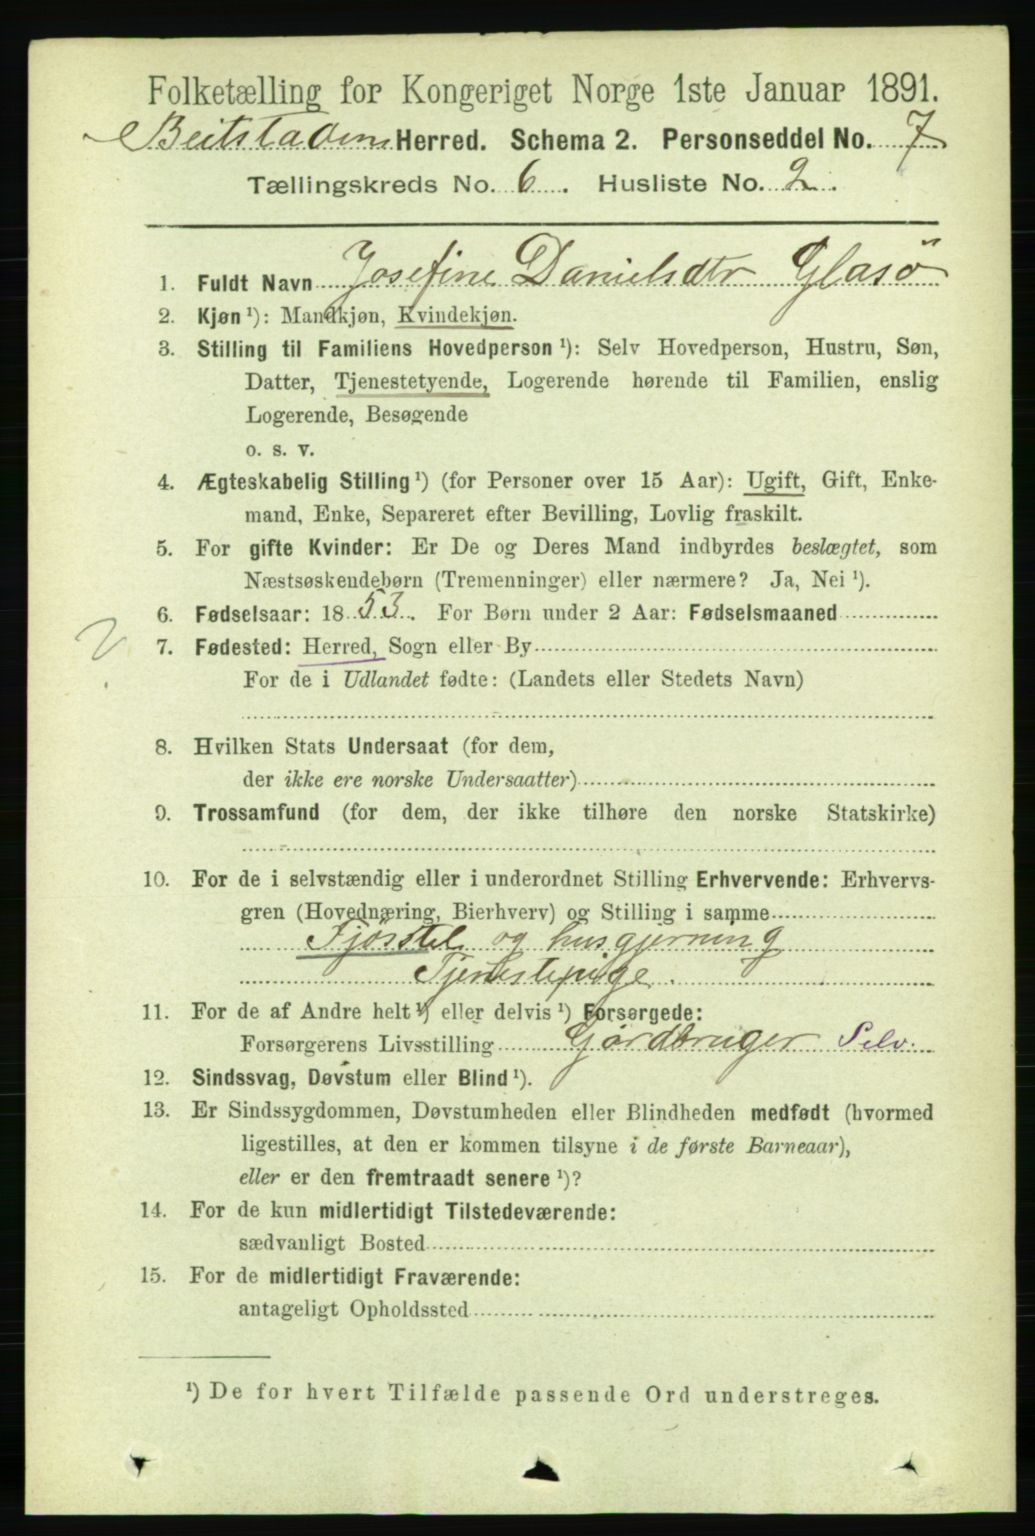 Folketælling for Kongeriget Norge 1ste Januar 1891.
Beitstadens Herred. Schema 2. Personseddel No. 7
Tællingskreds No. 6. Husliste No. 2.
1. Fuldt Navn Josefine Danielsdtr Glasö
2. Kjøn ¹): Mandkjøn, Kvindekjøn.
3. Stilling til Familiens Hovedperson ¹): Selv Hovedperson, Hustru, Søn,
Datter, Tjenestetyende, Logerende hørende til Familien, enslig
Logerende, Besøgende
o. s. v.
4. Ægteskabelig Stilling ¹) (for Personer over 15 Aar): Ugift, Gift, Enke-
mand, Enke, Separeret efter Bevilling, Lovlig fraskilt.
5. For gifte Kvinder: Er De og Deres Mand indbyrdes beslægtet, som
Næstsøskendebørn (Tremenninger) eller nærmere? Ja, Nei ¹).
6. Fødselsaar: 1853. For Børn under 2 Aar: Fødselsmaaned
7. Fødested: Herred, Sogn eller By
For de i Udlandet fødte: (Landets eller Stedets Navn)
8. Hvilken Stats Undersaat (for dem,
der ikke ere norske Undersaatter)
9. Trossamfund (for dem, der ikke tilhøre den norske Statskirke)
10. For de i selvstændig eller i underordnet Stilling Erhvervende: Erhvervs-
gren (Hovednæring, Bierhverv) og Stilling i samme
Fjösstel og husgjerning
Tjenestepige.
11. For de af Andre helt ¹) eller delvis ¹) Forsørgede:
Forsørgerens Livsstilling Gårdbruger Selv.
12. Sindssvag, Døvstum eller Blind ¹).
13. Er Sindssygdommen, Døvstumheden eller Blindheden medfødt (hvormed
ligestilles, at den er kommen tilsyne i de første Barneaar),
eller er den fremtraadt senere ¹)?
14. For de kun midlertidigt Tilstedeværende:
sædvanligt Bosted
15. For de midlertidigt Fraværende:
antageligt Opholdssted
¹) De for hvert Tilfælde passende Ord understreges.